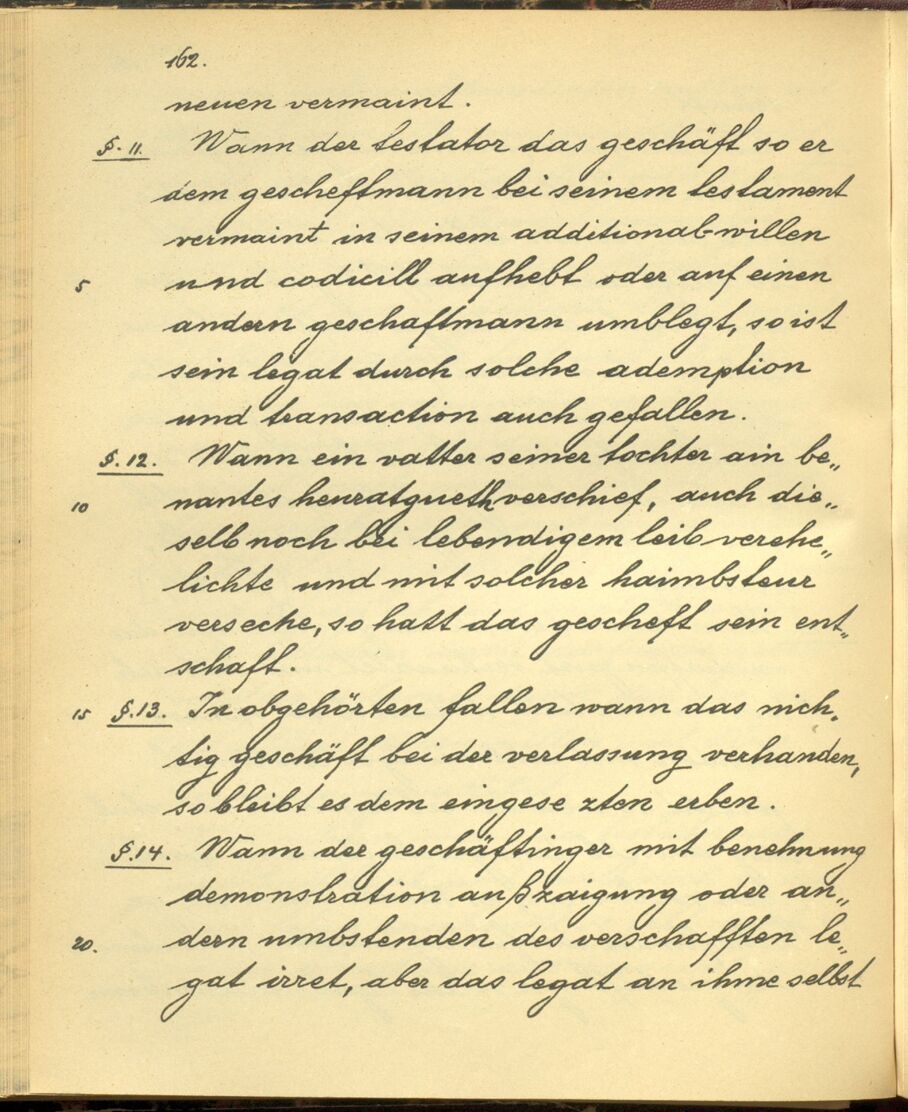 162.
neuen vermaint.
§. 11. Wann der testator das geschäft so er
dem gescheftmann bei seinem testament
vermaint in seinem additional-willen
5 und codicill aufhebt oder auf einen
andern geschaftmann umblegt, so ist
sein legat durch solche ademption
und transaction auch gefallen.
§. 12. Wann ein vatter seiner tochter ain be„
10 nantes heuratgueth verschief, auch die„
selb noch bei lebendigem leib verehe„
lichte und mit solcher haimbsteur
verseche, so hatt das gescheft sein ent„
schaft.
15 §. 13. In obgehörten fallen wann das nich„
tig geschäft bei der verlassung verhanden,
so bleibt es dem eingese zten erben.
§. 14. Wann der geschäftinger mit benehmung
demonstration außzaigung oder an„
20. dern umbstenden des verschafften le„
gat irret, aber das legat an ihme selbst